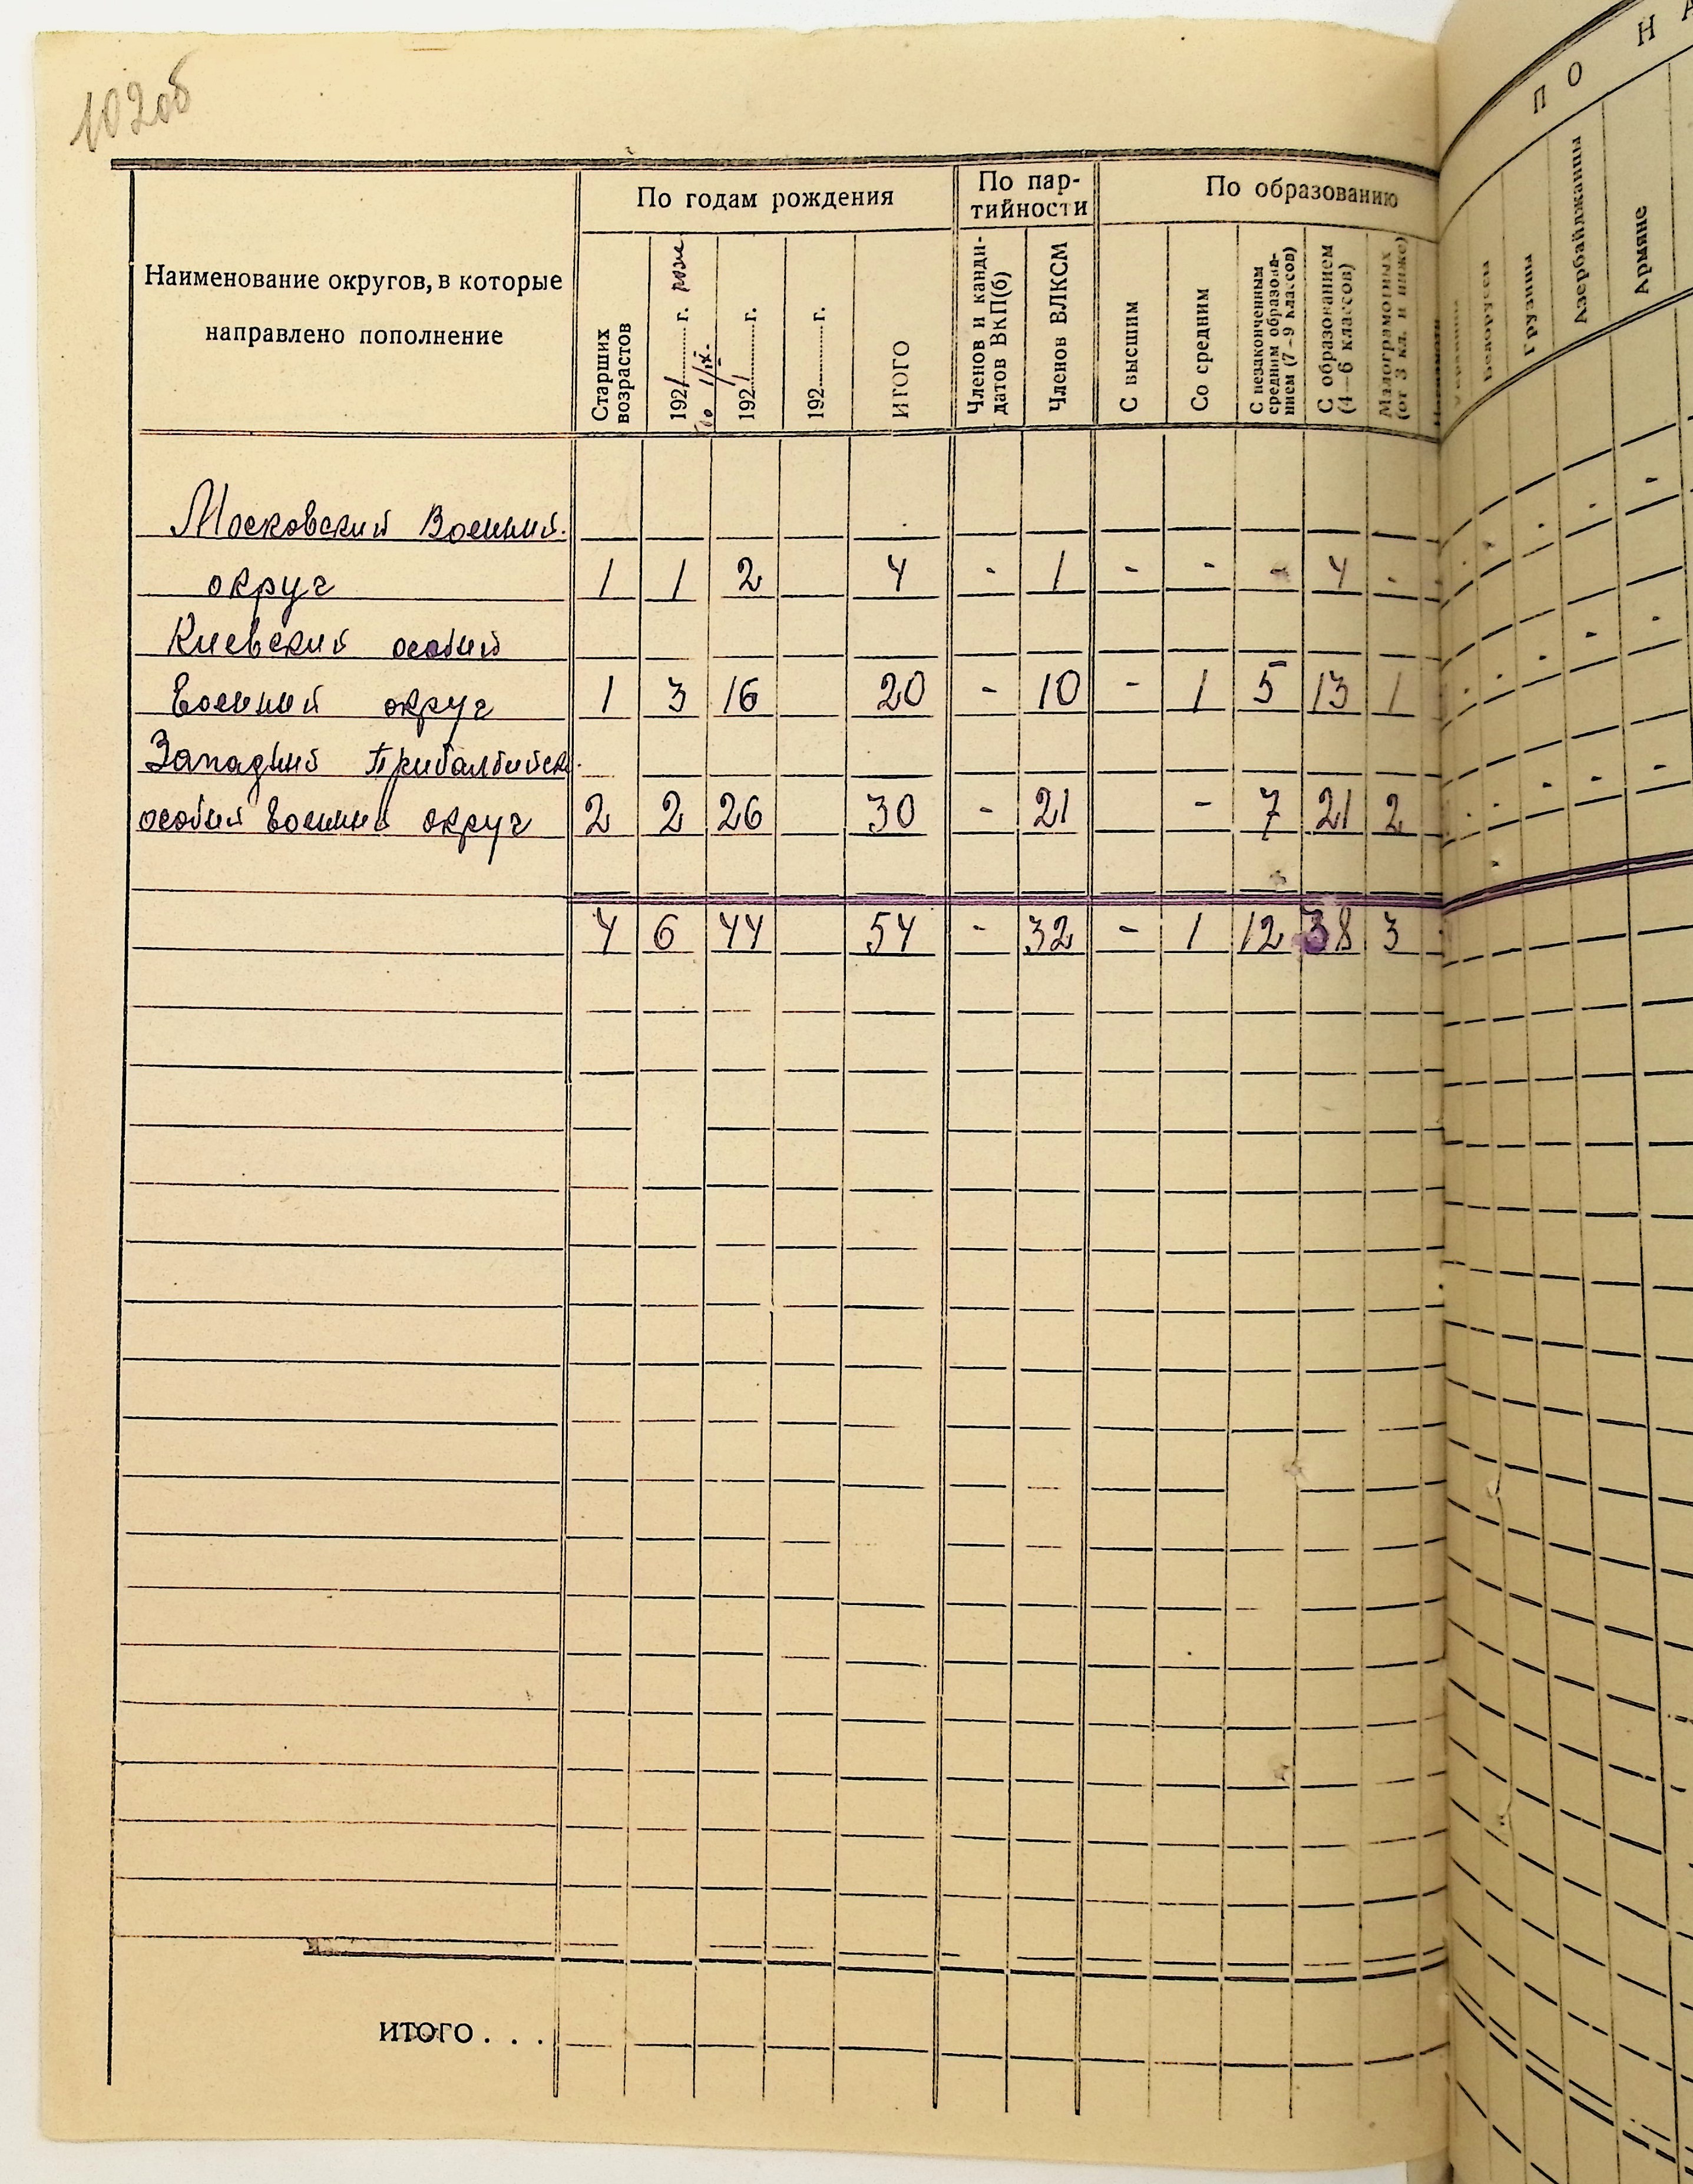 102об
По годам рождения
По пар-
тийности
По образованию
ПО НА
Наименование округов, в которые
направлено пополнение
Старших
возрастов
1921 г. рожд
до 1/IX.
1921 г.
192 г.
ИТОГО
Членов и канди-
датов ВКП(б)
Членов ВЛКСМ
С высшим
Со средним
С незаконченным
средним образова-
нием (7–9 классов)
С образованием
(4–6 классов)
Малограмотных
(от 3 кл. и ниже)
Белоруссы
Грузины
Азербайджанцы
Армяне
Московский Военный.
округ 1 1 2 4 - 1 - - - 4 -
Киевский особый
Военный округ 1 3 16 20 - 10 - 1 5 13 1
Западный Прибалтийск.
особый Военный округ 2 2 26 30 - 21 - 7 21 2
4 6 44 54 - 32 - 1 12 38 3
ИТОГО . . .